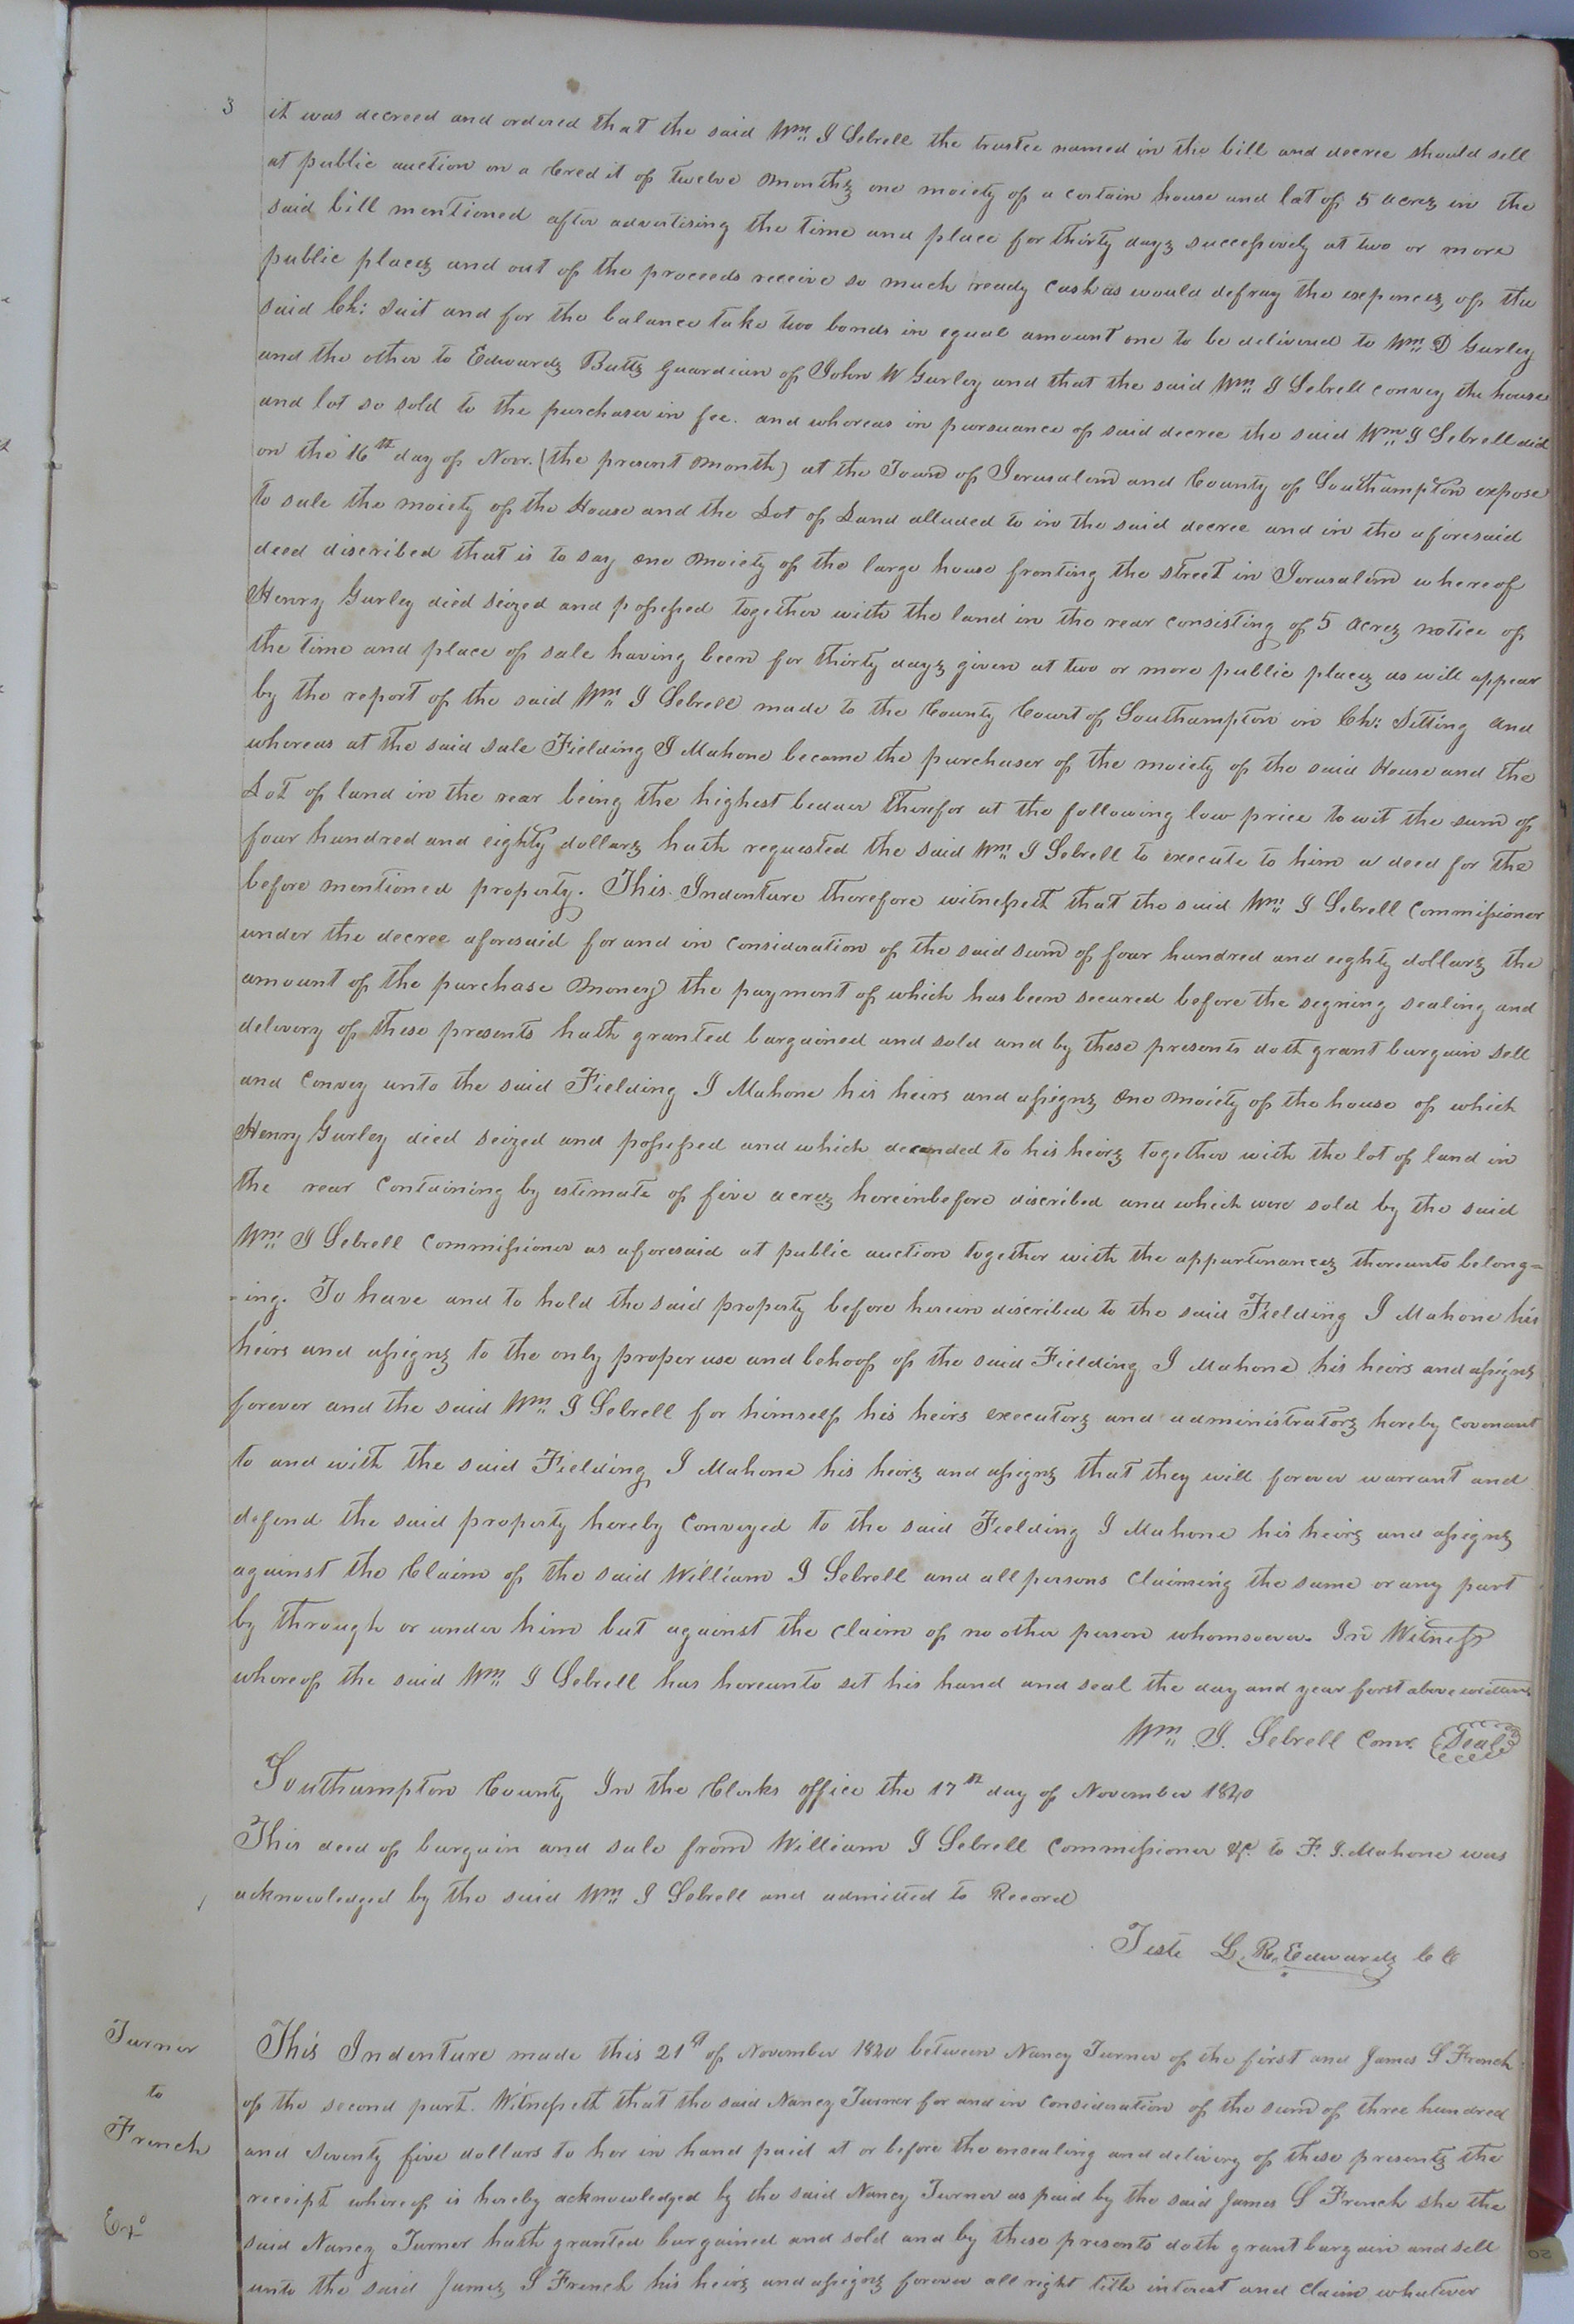 3
it was decreed and ordered that the said Wm. J Sebrell the trustee named in the bill and decree should sell
at public auction on a Credit of twelve Months one moiety of a certain house and lot of 5 acres in the
said bill mentioned after advertising the time and place for thirty days successively at two or more
public places and out of the proceeds receive so much ready Cash as would defray the expences of the
said Ch: suit and for the balance take two bonds in equal amount one to be delivered to Wm. D Gurley
and the other to Edwards Butts guardian of John W Gurley and that the said Wm. J Sebrell convey the house
and lot so sold to the purchaser in fee. and whereas in pursuance of said decree the said Wm. J Sebrell did
on the 16th day of Novr. (the present Month) at the Town of Jerusalem and County of Southampton expose
to sale the moiety of the House and the Lot of Land alluded to in the said decree and in the aforesaid
deed discribed that is to say one Moiety of the large house fronting the street in Jerusalem whereof
Henry Gurley died seized and possessed together with the land in the rear consisting of 5 acres notice of
the time and place of sale having been for thirty days given at two or more public places as will appear
by the report of the said Wm. J Sebrell made to the County Court of Southampton in Ch: Sitting and
whereas at the said sale Fielding J Mahone became the purchaser of the moiety of the said House and the
Lot of land in the rear being the highest bedder therefor at the following low price to wit the sum of
four hundred and eighty dollars hath requested the said Wm. J Sebrell to execute to him a deed for the
before mentioned property. This Indenture therefore witnesseth that the said Wm. J Sebrell Commissioner
under the decree aforesaid for and in consideration of the said sum of four hundred and eighty dollars the
amount of the purchase Money the payment of which has been secured before the segning sealing and
delivery of these presents hath granted bargained and sold and by these presents doth grant bargain sell
and Convey unto the said Fielding J Mahone his heirs and assigns One Moiety of the house of which
Henry Gurley died seized and possessed and which decended to his heirs together with the lot of land in
the rear Containing by estimate of five acres hereinbefore discribed and which were sold by the said
Wm. J Sebrell Commissioner as aforesaid at public auction together with the appurtenances thereunto belong=
-ing. To have and to hold the said property before herein discribed to the said Fielding J Mahone his
heirs and assigns to the only proper use and behoof of the said Fielding J Mahone his heirs and assigns
forever and the said Wm. J Sebrell for himself his heirs executors and administrators hereby Covenant
to and with the said Fielding J Mahone his heirs and assigns that they will forever warrant and
defend the said property hereby Conveyed to the said Fielding J Mahone his heirs and assigns
against the Claim of the said William J Sebrell and all persons Claiming the same or any part
by through or under him but against the Claim of no other person whomsoever. In Witness
whereof the said Wm. J Sebrell has hereunto set his hand and seal the day and year forst above written
Wm. J. Sebrell Comr. Seal
Southampton County In the Clerks office the 17th day of November 1840
This deed of bargain and sale from William J Sebrell Commissioner &c. to F. J. Mahone was
acknowledged by the said Wm. J Sebrell and admitted to Record
Teste L. R. Edwards C C
Turner
to
French
Exd
This Indenture made this 21st of November 1840 between Nancy Turner of the first and James S French
of the second part. Witnesseth that the said Nancy Turner for and in Consideration of the sum of three hundred
and Seventy five dollars to her in hand paid at or before the ensealing and delivery of these presents the
receipt whereof is hereby acknowledged by the said Nancy Turner as paid by the said James S French she the
said Nancy Turner hath granted bargained and sold and by these presents doth grant bargain and sell
unto the said James S French his heirs and assigns forever all right title interest and Claim whatever
20